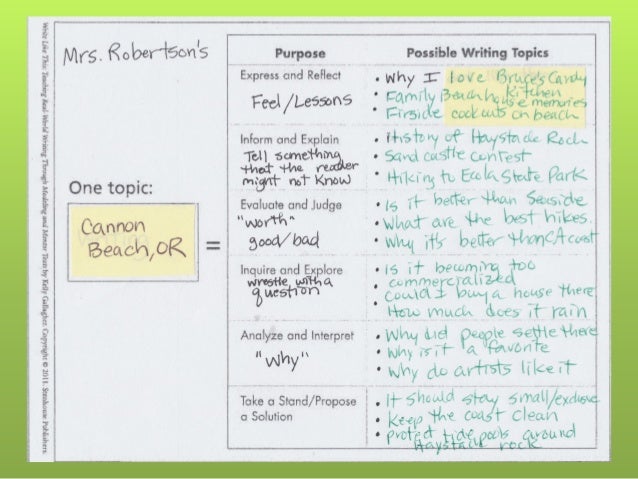 Write Like This: Teaching Real-World Writing Through Modeling and Mentor Texts by Kelly Gallagher. Copyright © 2011. Stenhouse Publishers.
Mrs. Robertson's
One topic:
Cannon
Beach, OR
=
Purpose
Possible Writing Topics
Express and Reflect
Feel/Lessons
• Why I love Bruce's Candy
Kitchen
• Family Beach house memories
• Fireside cookouts on beach
Inform and Explain
Tell something
that the reader
might not know
• History of Haystack Rock
• Sand castle contest
• Hiking to Ecola State Park
Evaluate and Judge
"worth"
good/bad
• Is it better than Seaside
• What are the best hikes.
• Why it's better than CA coast
Inquire and Explore
wrestle with a
question
• Is it becoming too
commercialized
• Could I buy a house there
• How much does it rain
Analyze and Interpret
"Why"
• Why did people settle there
• Why is it a favorite
• Why do artists like it
Take a Stand/Propose
a Solution
• It should stay small/exclusive
• Keep the coast clean
• protect tide pools around
Haystack rock